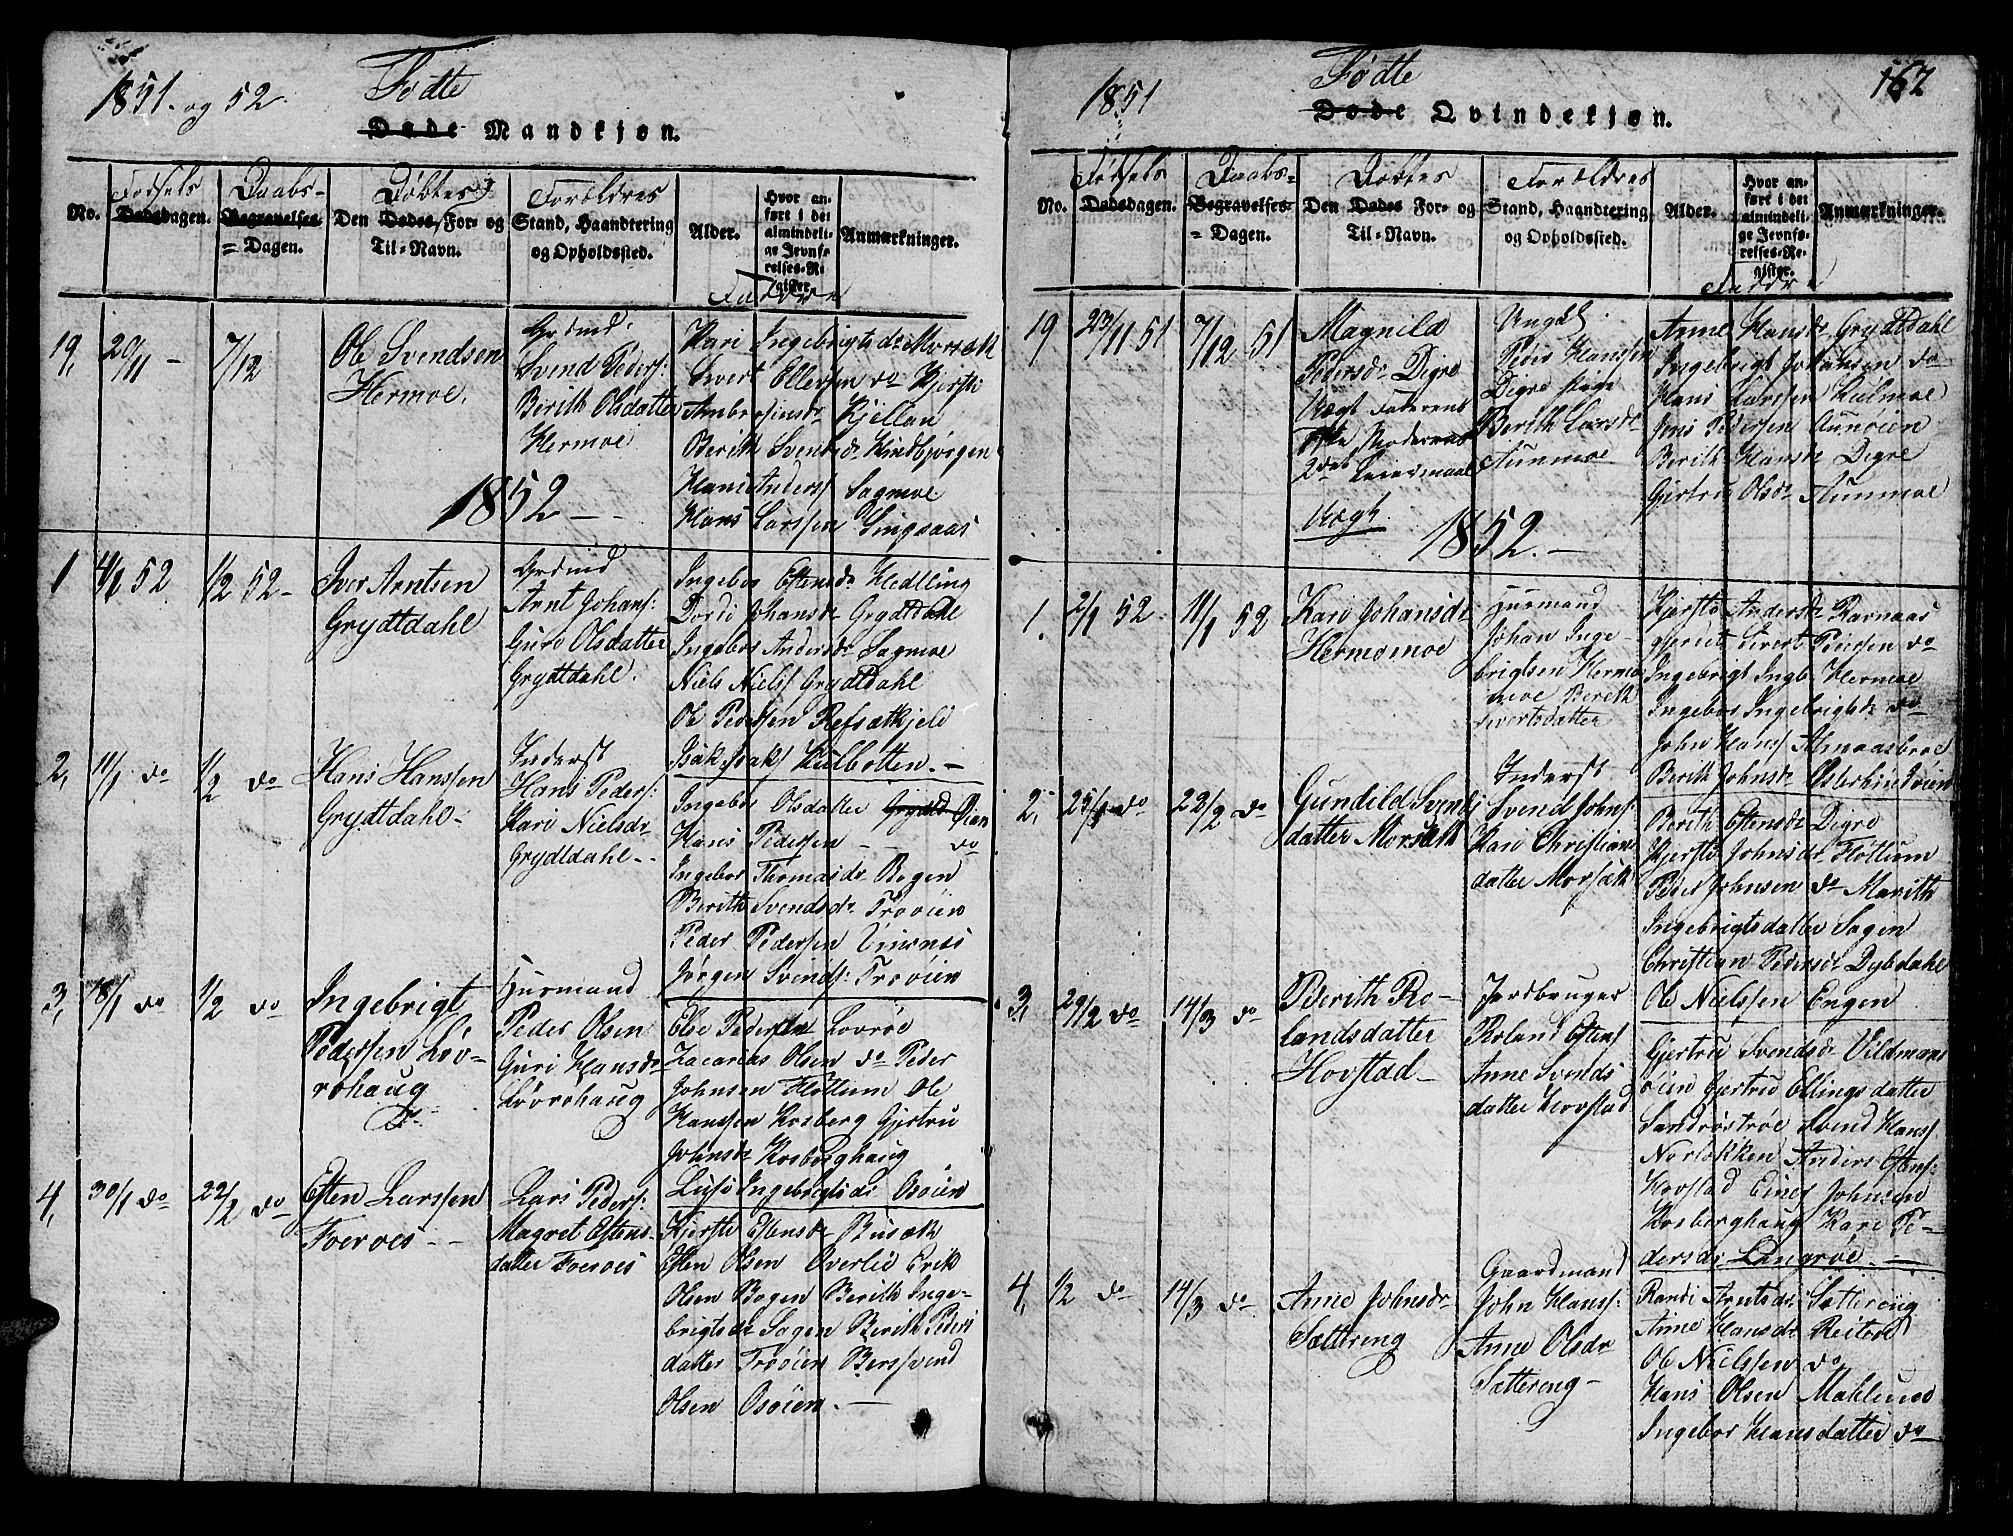 1851. og 52.
Fødte
Døde Mandkjøn.
No.
Fødsels
Dødsdagen.
Daabs-
Begravelses
= Dagen.
Døbtes
Den Dødes, For- og
Til-Navn.
Forældres
Stand, Haandtering
og Opholdssted.
Alder.
Hvor an-
ført i det
almindeli-
ge Jevnfø-
relses-Re-
gister.
Anmærkninger.
Faddre
19, 20/11 - 7/12
Ole Svendsen
Hermoe.
Grdmd.
Svend Peders:
Berith Olsdatter
Hermoe
Kari Ingebrigtsdr Morsæth
Sivert Ellersen do Kjersti
Ambrosiusdr Kjellan
Berith Svendsdr Hindbjørgen
Hans Anderss Sagmoe
Hans Larssen Singsaas
1852 -
1 4/1 52 1/2 52 -
Iver Arntsen
Grydtdahl
Grdmd
Arnt Johans:
Guro Olsdatter
Grydtdahl.
Ingebor Estensdr Hedling
Dordi Johansdr Grydtdahl
Ingebor Andersdr Sagmoe
Niels Nielss Grydtdahl
Ole Pedersen Refsæthjeld
Isak Isaks Kulbotten. -
2, 11/1 do 1/2 do
Hans Hanssen
Grydtdahl -
Inderst
Hans Peders:
Kari Nielsdr
Grydtdahl -
Ingebor Olsdatter Grydtd Øien
Hans Pedersen - do
Ingebor Thomasdr Bogen
Berith Svendsdr Trøøien
Peder Pedersen
Jørgen Svends: Trøøien
3, 18/1 do 1/2 do
Ingebrigt
Pedersen Løv-
røhaug
Husmand
Peder Olsen
Guri Hansdr
Løvrøhaug
Else Pedersen Lovrøe
Zacarias Olsen do Peder
Johnsen Fløttum Ole
Hanssen Kosberg Gjertru
Johnsdr Kosberghaug
Lusi Ingebrigtsdr Osøien
4, 30/1 do 22/2 do
Esten Larssen
Foeroes -
Lars Peders:
Magret Estens-
datter Foeroes
Kjersti Estensdr Busæth
Esten Olsen Overlie Erik
Olsen Bogen Berith Inge-
brigtsdr Sagen Berith Peders
datter Trøøien Berssvend
Olsen Osøien. -
1851
Fødte
Døde Qvindekjøn.
162
No.
Fødsels
Dødsdagen.
Daabs-
Begravelses-
= Dagen.
Døbtes
Den Dødes For- og
Til-Navn.
Forældres
Stand, Haandtering
og Opholdssted.
Alder.
Hvor an-
ført i det
almindeli-
ge Jevnfø-
relses-Re-
gister.
Anmærkninger.
Faddre
19 23/11 51 7/12 51
Magnild
Pedersdr Digre
Uægt Faderens
1ste Moderens
2det Leiermaal
Uægte
Ungkl.
Peder Hanssen
Digre Pige
Berith Larsdr
Aunmoe
Anne Hansdr Grydtdahl
Ingebrigt Johansen do
Hans Larssen Kulmoe
Jens Pedersen Aunøien
Berith Hansdr Digre
Gjertru Olsdr Aunmoe
1852. -
1. 2/1 52 11/1 52
Kari Johansdr
Hermomoe
Husmand
Johan Inge-
brigtsen Hermo
moe Berith
Sivertsdatter
Kjersti Andersdr Ramaas
Sivert Pedersen do
Ingebrigt Ingb. Hermoe
Ingebor Ingebrigtsdr do
John Hanss Almaasbroe
Berith Johnsdr
2, 25/1 do 22/2 do
Gunild Svends
datter Morsæth
Inderst
Svend Johns:
Kari Christians
datter Morsæth
Berith Estensdr Digre
Kjersti Johnsdr Fløttum
Peder Johnsen do Marith
Ingebrigtsdatter Sagen
Christian Pedersdr Dybdahl
Ole Nielssen Engen
3, 29/2 do 14/3 do
Berith Ro-
landsdatter
Hovstad -
Jordbruger
Roland Estens
Anne Svends
datter Hovstad
Gjertru Svendsdr Vildmans
øien Gjertrud Ellingsdatter
Sandrøstrøe Svend Hans
Norløkken Anders Estens:
Hovstad Einer Johnsen
Kosberghaug Kari Pe-
dersdr Langrøe. -
4, 1/2 do 14/3 do
Anne Johnsdr
Sættereng
Gaardmand
John Hans:
Anne Olsdr
Sættereng -
Randi Arntsdr Sættereng
Anne Hansdr Reitan
Ole Nielssen do
Hans Olsen Moklund
Ingebor Hansdatter do